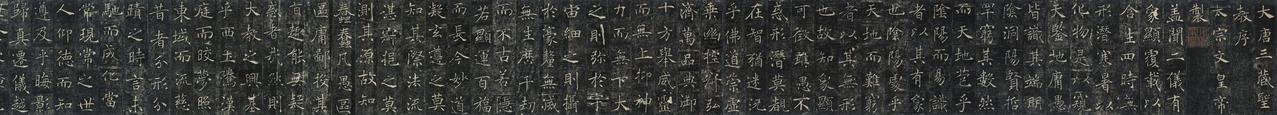 大唐三藏聖
教序
太宗文皇帝
製
蓋聞二儀有
象顯覆載以
含生四時無
形潛寒暑以
化物是以窺
天鑒地庸愚
皆識其端明
陰洞陽賢哲
罕窮其數然
而天地苞乎
陰陽而易識
者以其有象
也陰陽處乎
天地而難窮
者以其無形
也故知象顯
可徵雖愚不
惑形潛莫覩
在智猶迷況
乎佛道崇虛
乘幽控寂弘
濟萬品典御
十方舉威靈
而無上抑神
力而無下大
之則彌於宇
宙細之則攝
於豪釐無滅
無生歷千劫
而不古若隱
若顯運百福
而長今妙道
凝玄遵之莫
知其際法流
湛寂挹之莫
測其源故知
蠢蠢凡愚區
區庸鄙投其
旨趣能無疑
惑者哉然則
大教之興基
乎西土騰漢
庭而皎夢照
東域而流慈
昔者分形分
蹟之時言未
馳而成化當
常現常之世
人仰德而知
遵及乎晦影
歸真遷儀越